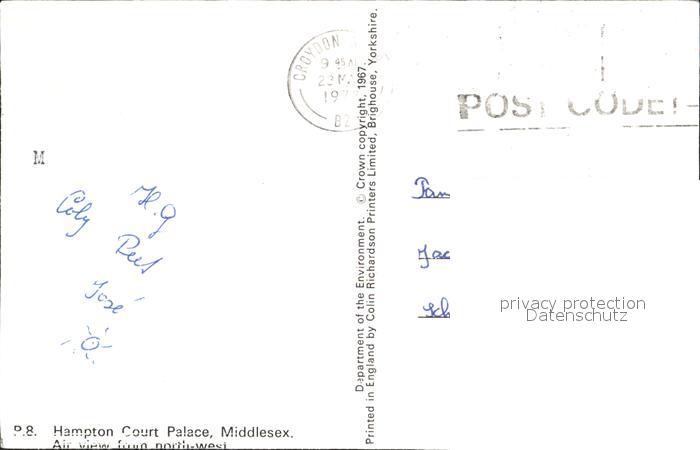 CROYDON
9 45 AM
POST CODE!
M
H.G
José
Department of the Environment. © Crown copyright, 1967.
Printed in England by Colin Richardson Printers Limited, Brighouse, Yorkshire.
privacy protection
Datenschutz
P.8. Hampton Court Palace, Middlesex.
Air view from north-west